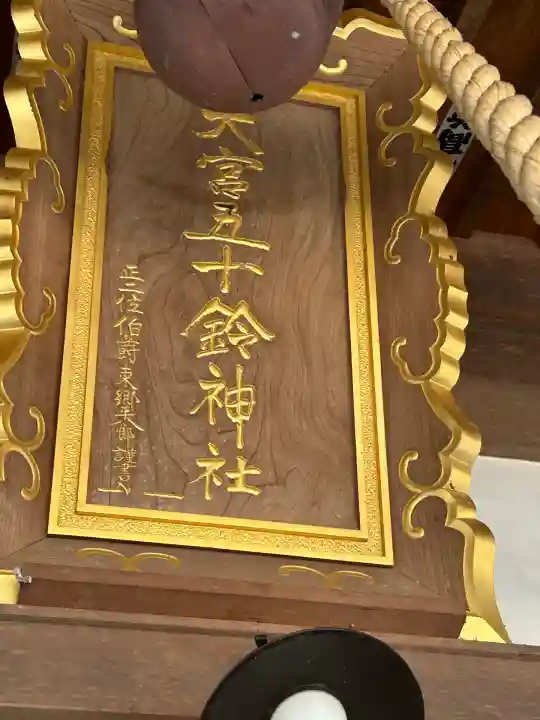 天宮五十鈴神社
正二位伯爵東郷平八郎謹書